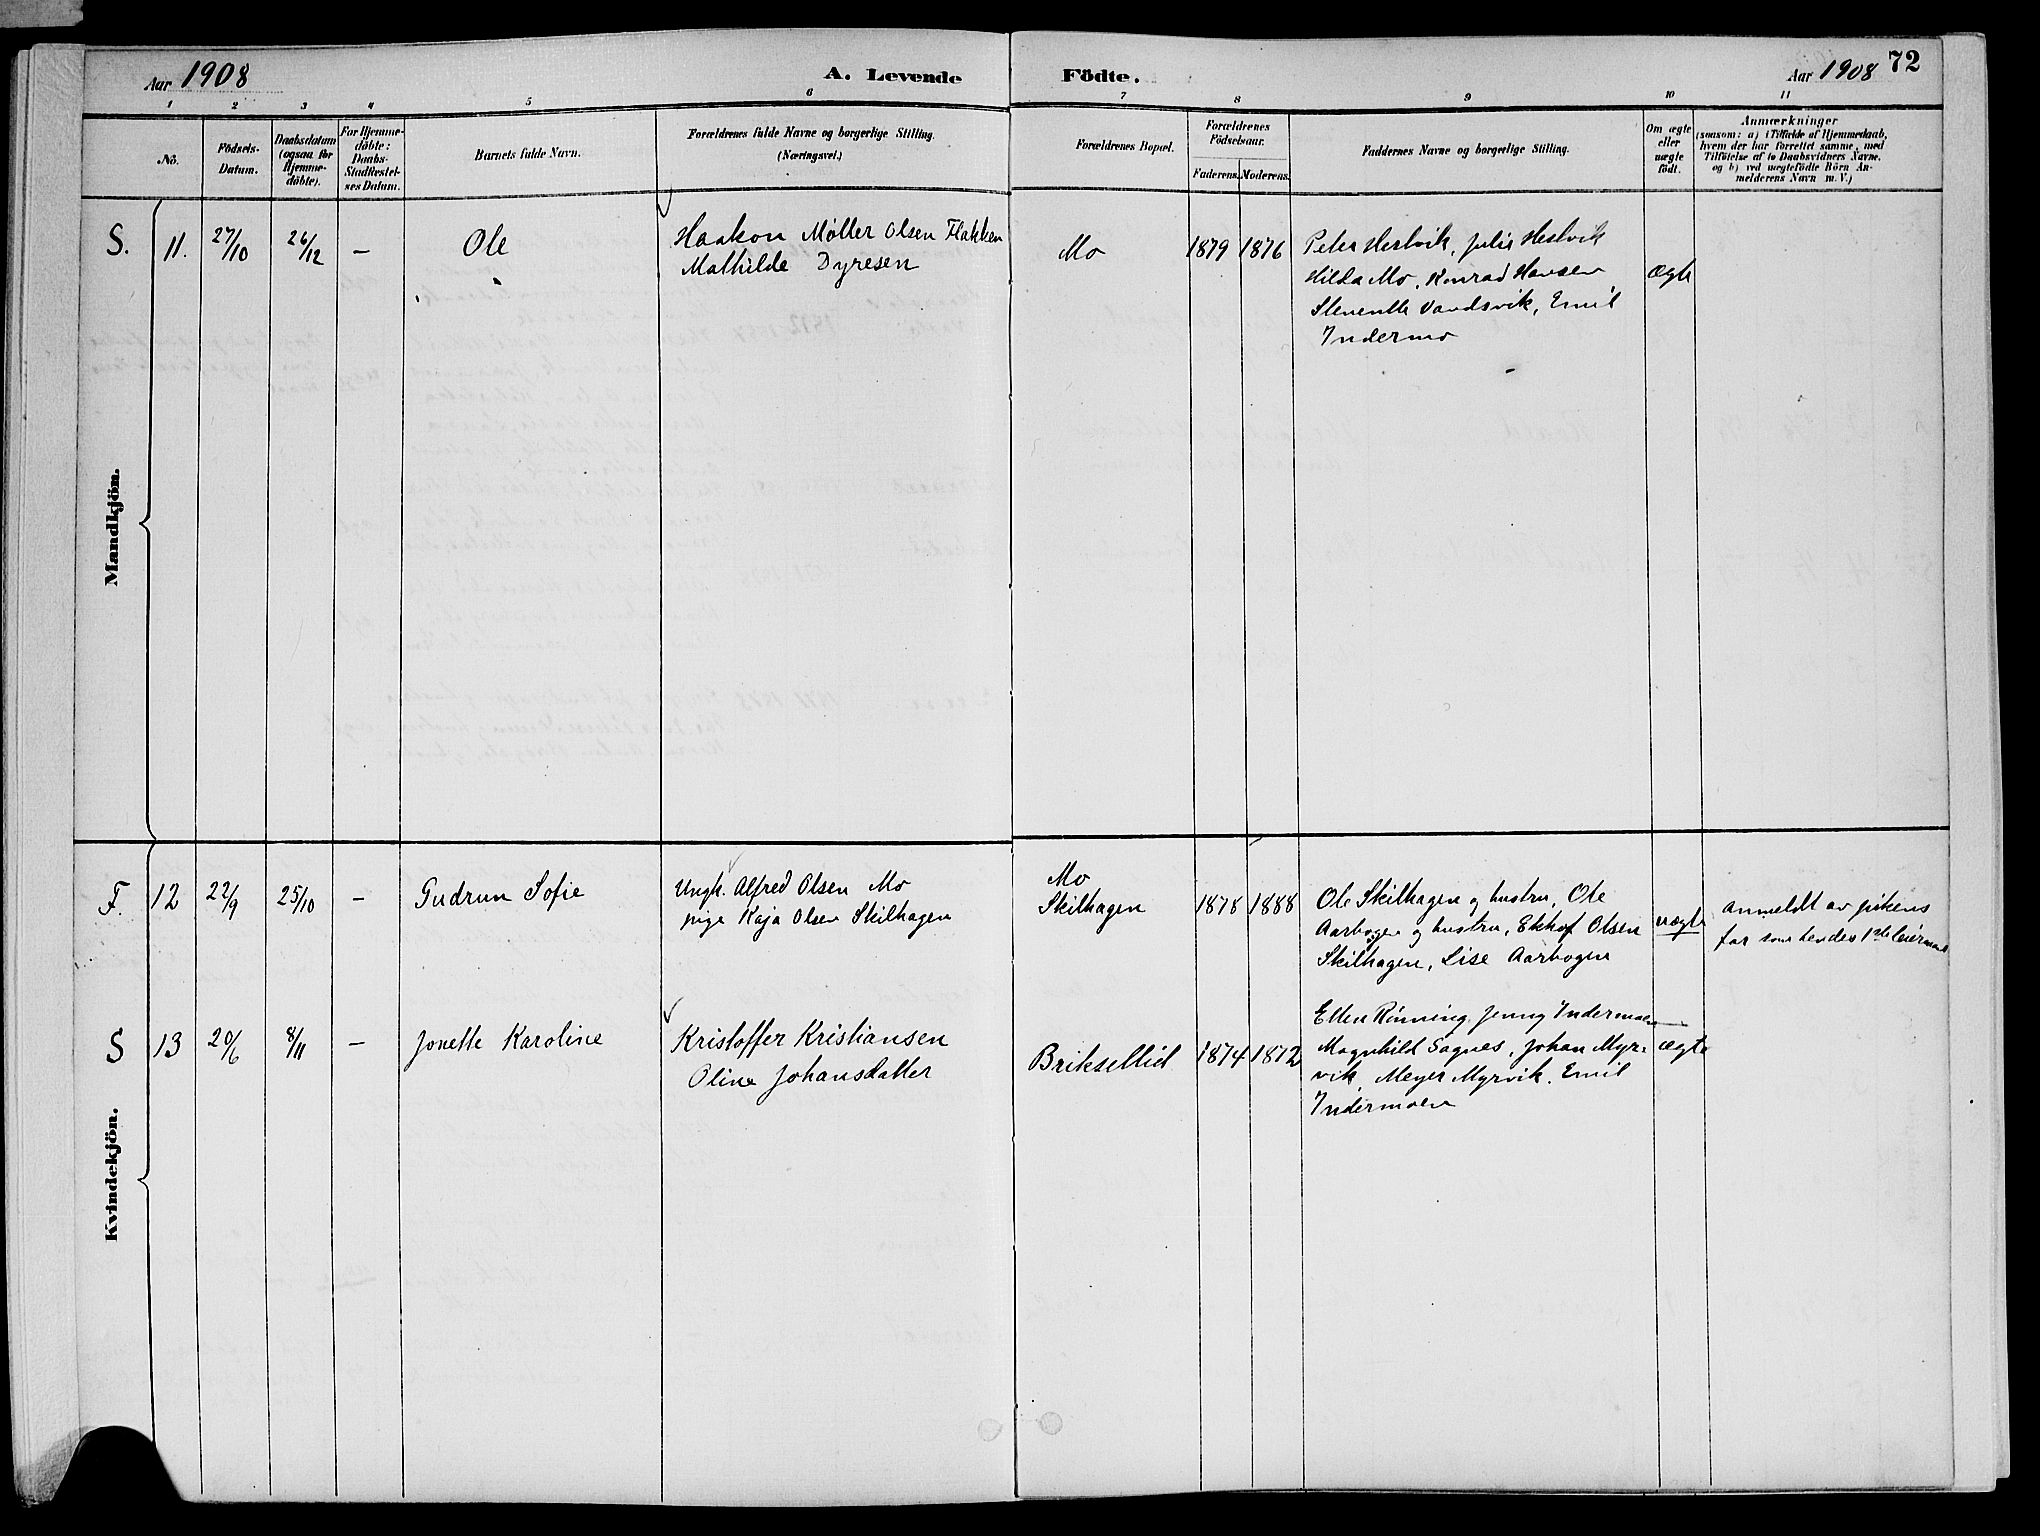 Aar 1908
A. Levende
Födte.
Aar 1908
72
1 2 3 4 5 6 7 8 9 10 11
No.
Födsels-
Datum.
Daabsdatum
(ogsaa for
Hjemme-
döbte).
For Hjemme-
döbte:
Daabs-
Stadfestel-
ses Datum.
Barnets fulde Navn.
Forældrenes fulde Navne og borgerlige Stilling.
(Næringsvei.)
Forældrenes Bopæl.
Forældrenes
Födselsaar.
Faderens. Moderens.
Faddernes Navne og borgerlige Stilling.
Om ægte
eller
uægte
født.
Anmærkninger
(saasom: a) i Tilfælde af Hjemmedaab,
hvem der har forrettet samme, med
Tilföielse af to Daabsvidners Navne,
og b) ved uægtefödte Börn An-
melderens Navn m. V.)
Mandkjön.
S. 11. 27/10 26/12 – Ole
Haakon Møller Olsen Flakken
Mathilde Dyresen
Mo 1879 1876
Peter Hestvik, Julie Hestvik
Hilda Mo, Konrad Hansen
Vandsvik, Emil
Indermo
ægte
Kvindekjön.
F. 12 22/9 25/10 – Gudrun Sofie
Ungk. Alfred Olsen Mo
pige Kaja Olsen Skilhagen
Mo
Skilhagen 1878 1888
Ole Skilhagen og hustru, Ole
Aarbogen og hustru, Ekhof Olsen
Skilhagen, Lise Aarbogen
uægte
Anmeldt av pikens
far som hendes 1ste leiermaal
S 13 20/6 8/11 – Jonette Karoline
Kristoffer Kristiansen
Oline Johansdatter
Briksellid 1874 1872
Ellen Rönning, Jenny Indermoen
Magnhild Sagnes, Johan Myr-
vik, Meyer Myrvik, Emil
Indermoen
ægte